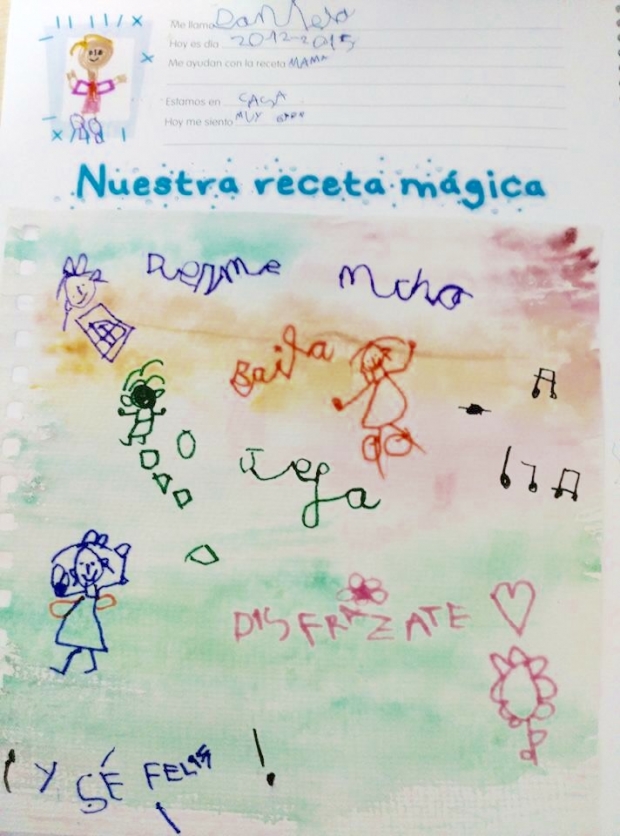 Me llamo Daniela
Hoy es día 2012-2015
Me ayudan con la receta MAMA
Estamos en CASA
Hoy me siento MUY
Nuestra receta mágica
Duerme Mcho
Baila
Juega
DISFRAZATE
¡Y SÉ FELIZ!